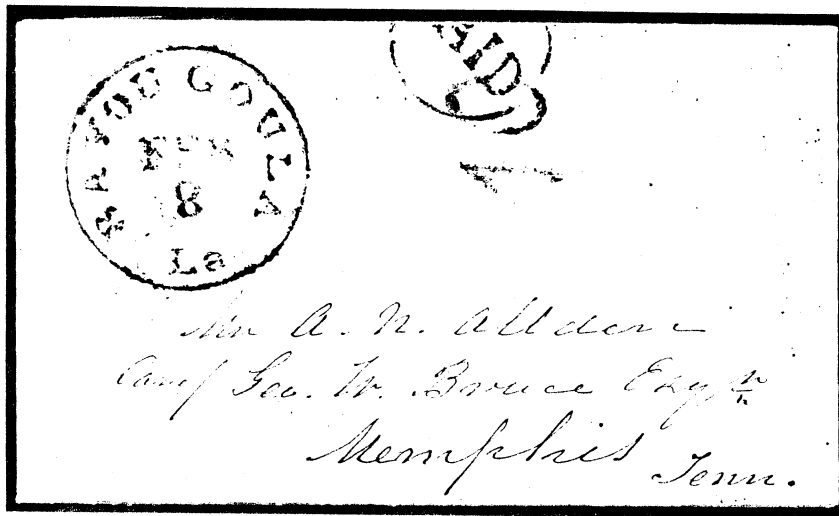 BAYOU GOULA
FEB
8
La
PAID
A. N. Allden
Geo. W. Bruce Esqr
Memphis
Tenn.